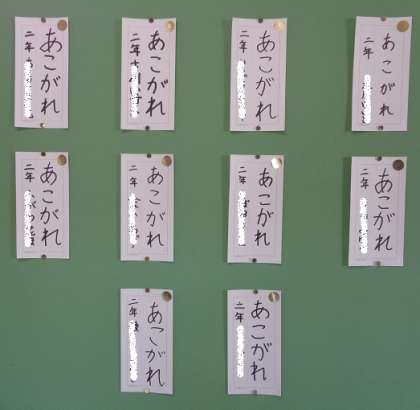 あこがれ
二年
あこがれ
二年
あこがれ
二年
あこがれ
二年
あこがれ
二年
あこがれ
二年
あこがれ
二年
あこがれ
二年
あこがれ
二年
あこがれ
二年